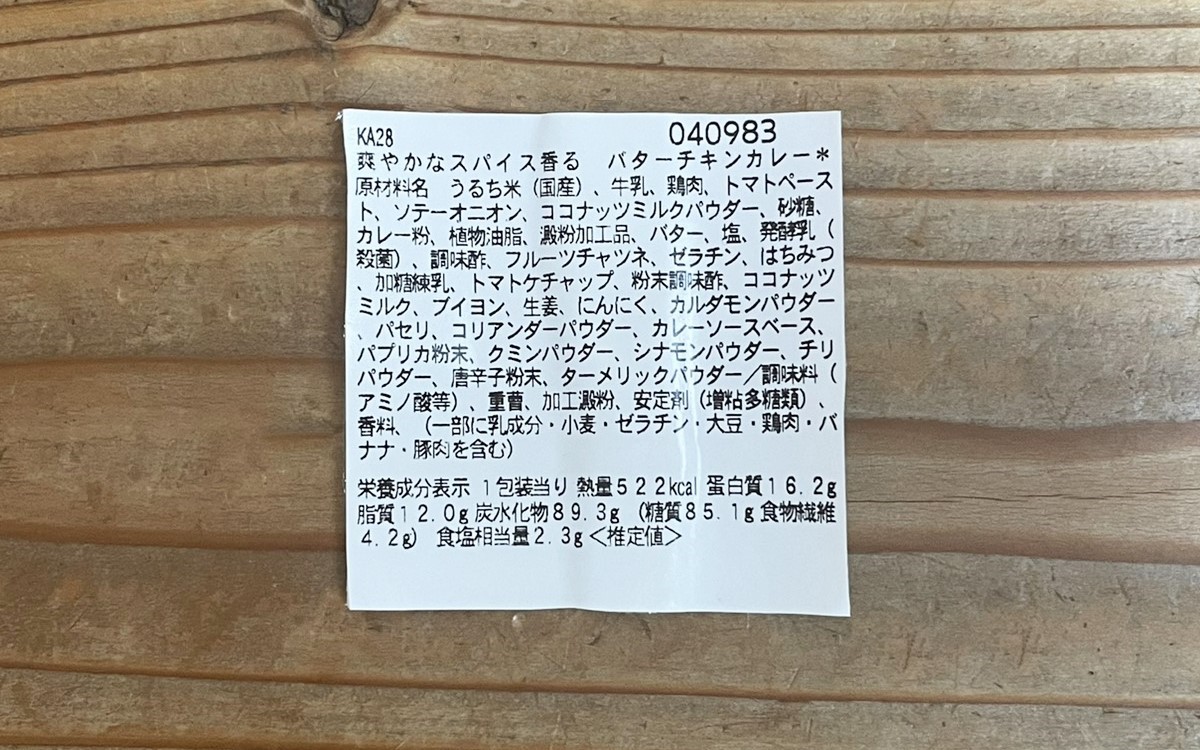 KA28 040983
爽やかなスパイス香る バターチキンカレー*
原材料名 うるち米(国産)、牛乳、鶏肉、トマトペース
ト、ソテーオニオン、ココナッツミルクパウダー、砂糖、
カレー粉、植物油脂、澱粉加工品、バター、塩、発酵乳(
殺菌)、調味酢、フルーツチャツネ、ゼラチン、はちみつ
、加糖練乳、トマトケチャップ、粉末調味酢、ココナッツ
ミルク、ブイヨン、生姜、にんにく、カルダモンパウダー
、パセリ、コリアンダーパウダー、カレーソースベース、
パプリカ粉末、クミンパウダー、シナモンパウダー、チリ
パウダー、唐辛子粉末、ターメリックパウダー/調味料(
アミノ酸等)、重曹、加工澱粉、安定剤(増粘多糖類)、
香料、(一部に乳成分・小麦・ゼラチン・大豆・鶏肉・バ
ナナ・豚肉を含む)
栄養成分表示 1包装当り 熱量522kcal 蛋白質16.2g
脂質12.0g 炭水化物89.3g (糖質85.1g 食物繊維
4.2g) 食塩相当量2.3g <推定値>